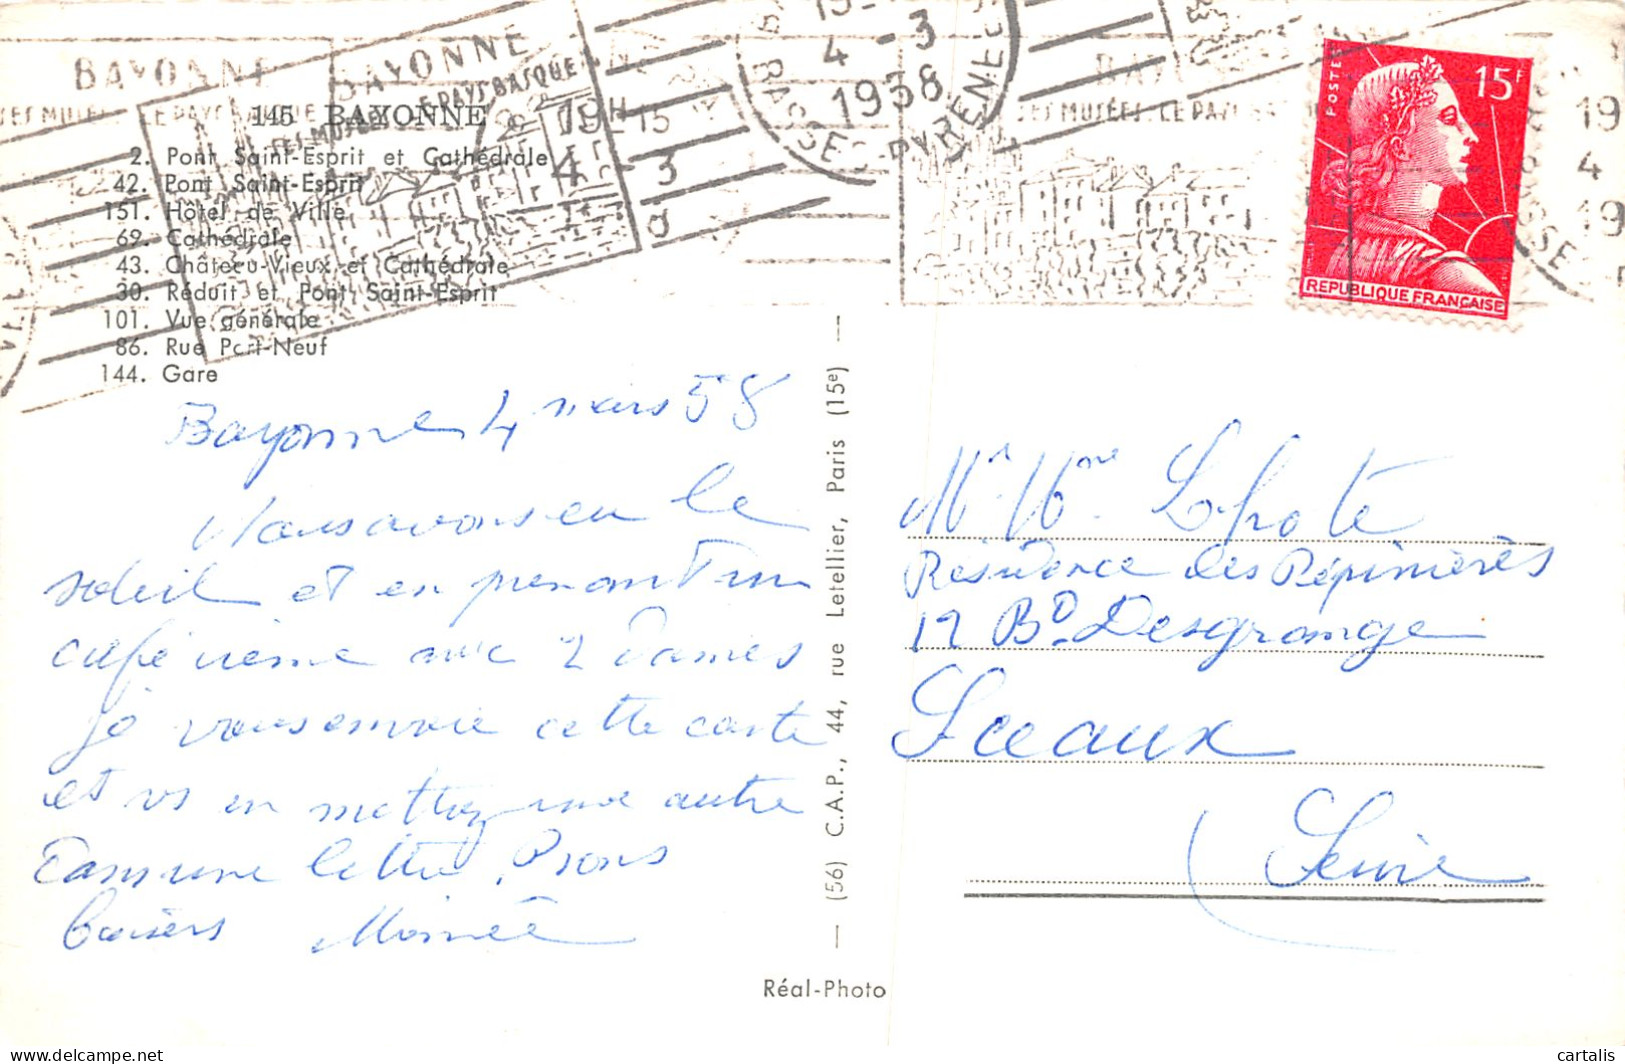 BAYONNE
SES MUSÉES LE PAYS BASQUE
BAYONNE
SES MUSÉES LE PAYS BASQUE
19H15
4 - 3
4 - 3
1958
BASSES-PYRENEES
SES MUSÉES. LE PAYS BASQUE
POSTES
15F
REPUBLIQUE FRANÇAISE
145 BAYONNE
2. Pont Saint-Esprit et Cathédrale
42. Pont Saint-Esprit
151. Hôtel de Ville
69. Cathédrale
43. Château-Vieux et Cathédrale
30. Réduit et Pont Saint-Esprit
101. Vue générale
86. Rue Port-Neuf
144. Gare
Bayonne 4 mars 58
Nous avons eu le
soleil et en prenant un
café crème avec 2 Dames
je vous envoie cette carte
et vs en mettez une autre
dans une lettre. Bons
baisers
— (56) C.A.P., 44, rue Letellier, Paris (15e) —
Réal-Photo
Mr Mme Lhote
Résidence des Pépinières
12 Bd Desgrange
Sceaux
Seine
cartalis
www.delcampe.net